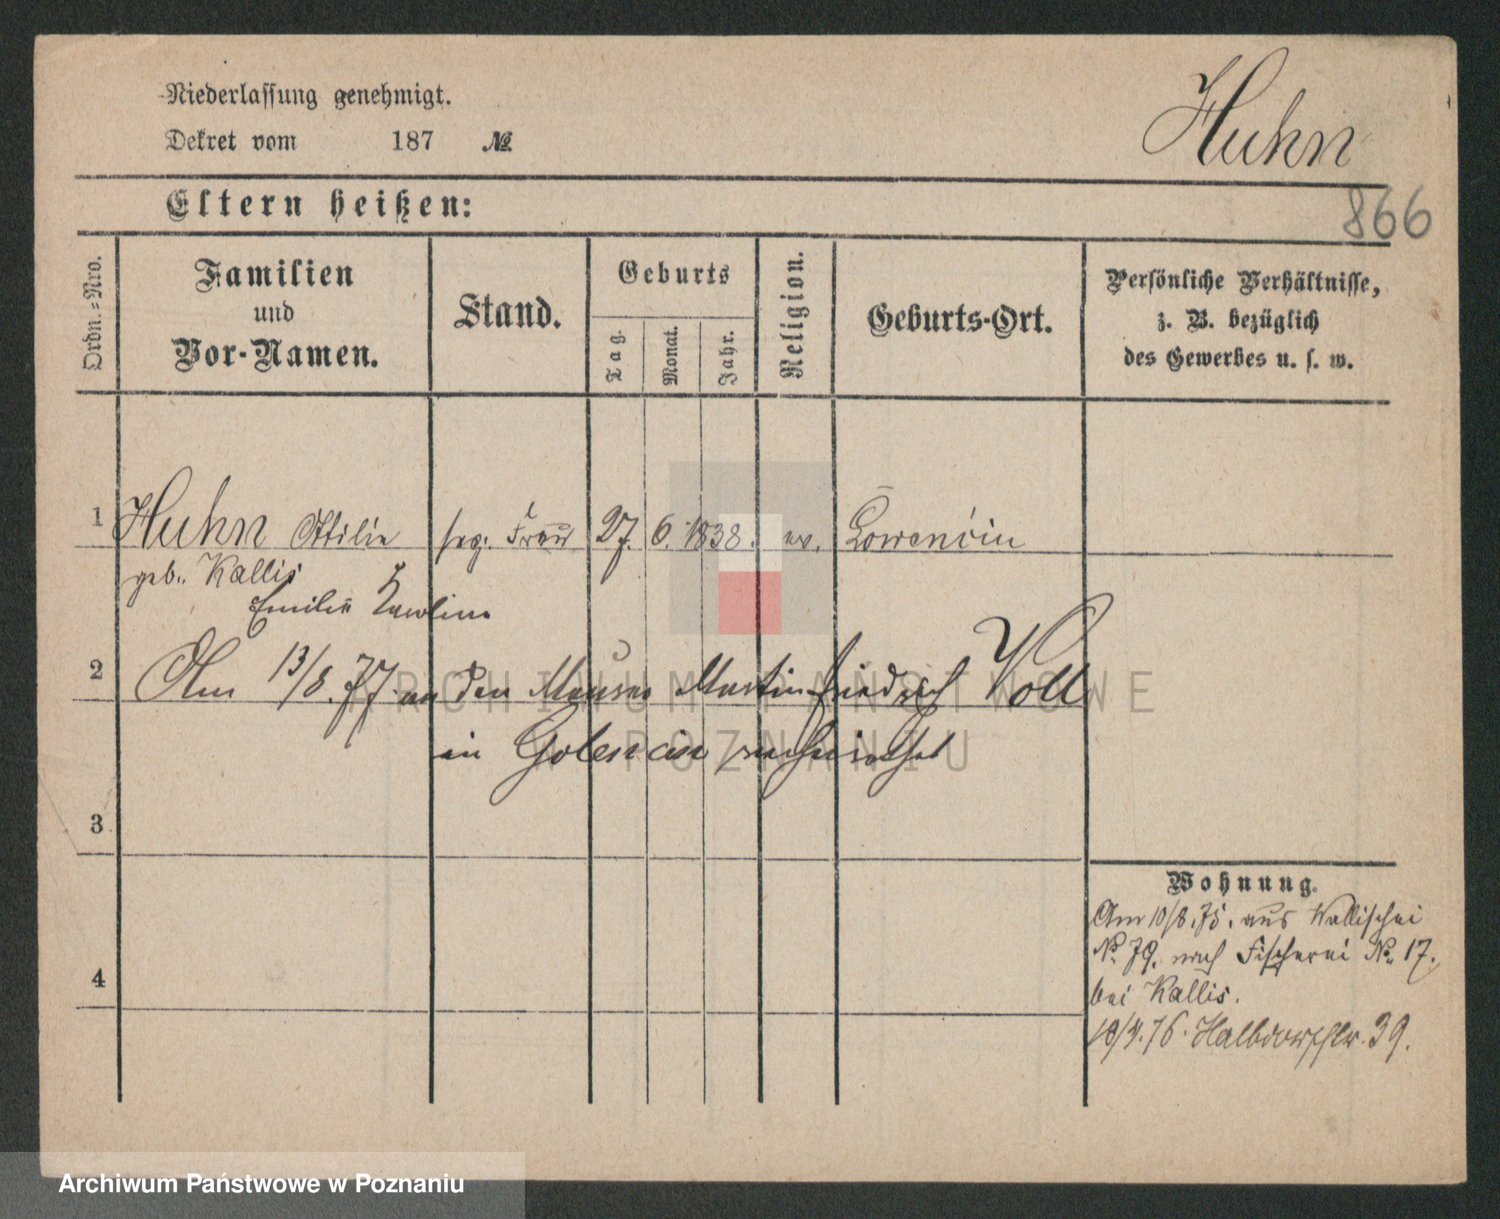 Niederlassung genehmigt.
Huhn
Dekret vom 187 №.
Eltern heißen:
866
Ordn.-Nro.
Familien und Vor-Namen.
Stand.
Geburts
Tag.
Monat.
Jahr.
Religion.
Geburts-Ort.
Persönliche Verhältnisse,
z. B. bezüglich
des Gewerbes u. s. w.
1 Huhn Ottilie sep. Frau 27. 6. 1838. ev. Lowencin
geb. Kallis
Emilie
2 Am 13/8. 77. an den Maurer Martin Friedrich Voll
in Golencin verheirathet
3
4
Wohnung.
Am 10/8. 75. aus Wallischei
No. 79. nach Fischerei No. 17.
bei Kallis.
76. Halbdorfstr. 39.
ARCHIWUM PAŃSTWOWE
W POZNANIU
Archiwum Państwowe w Poznaniu